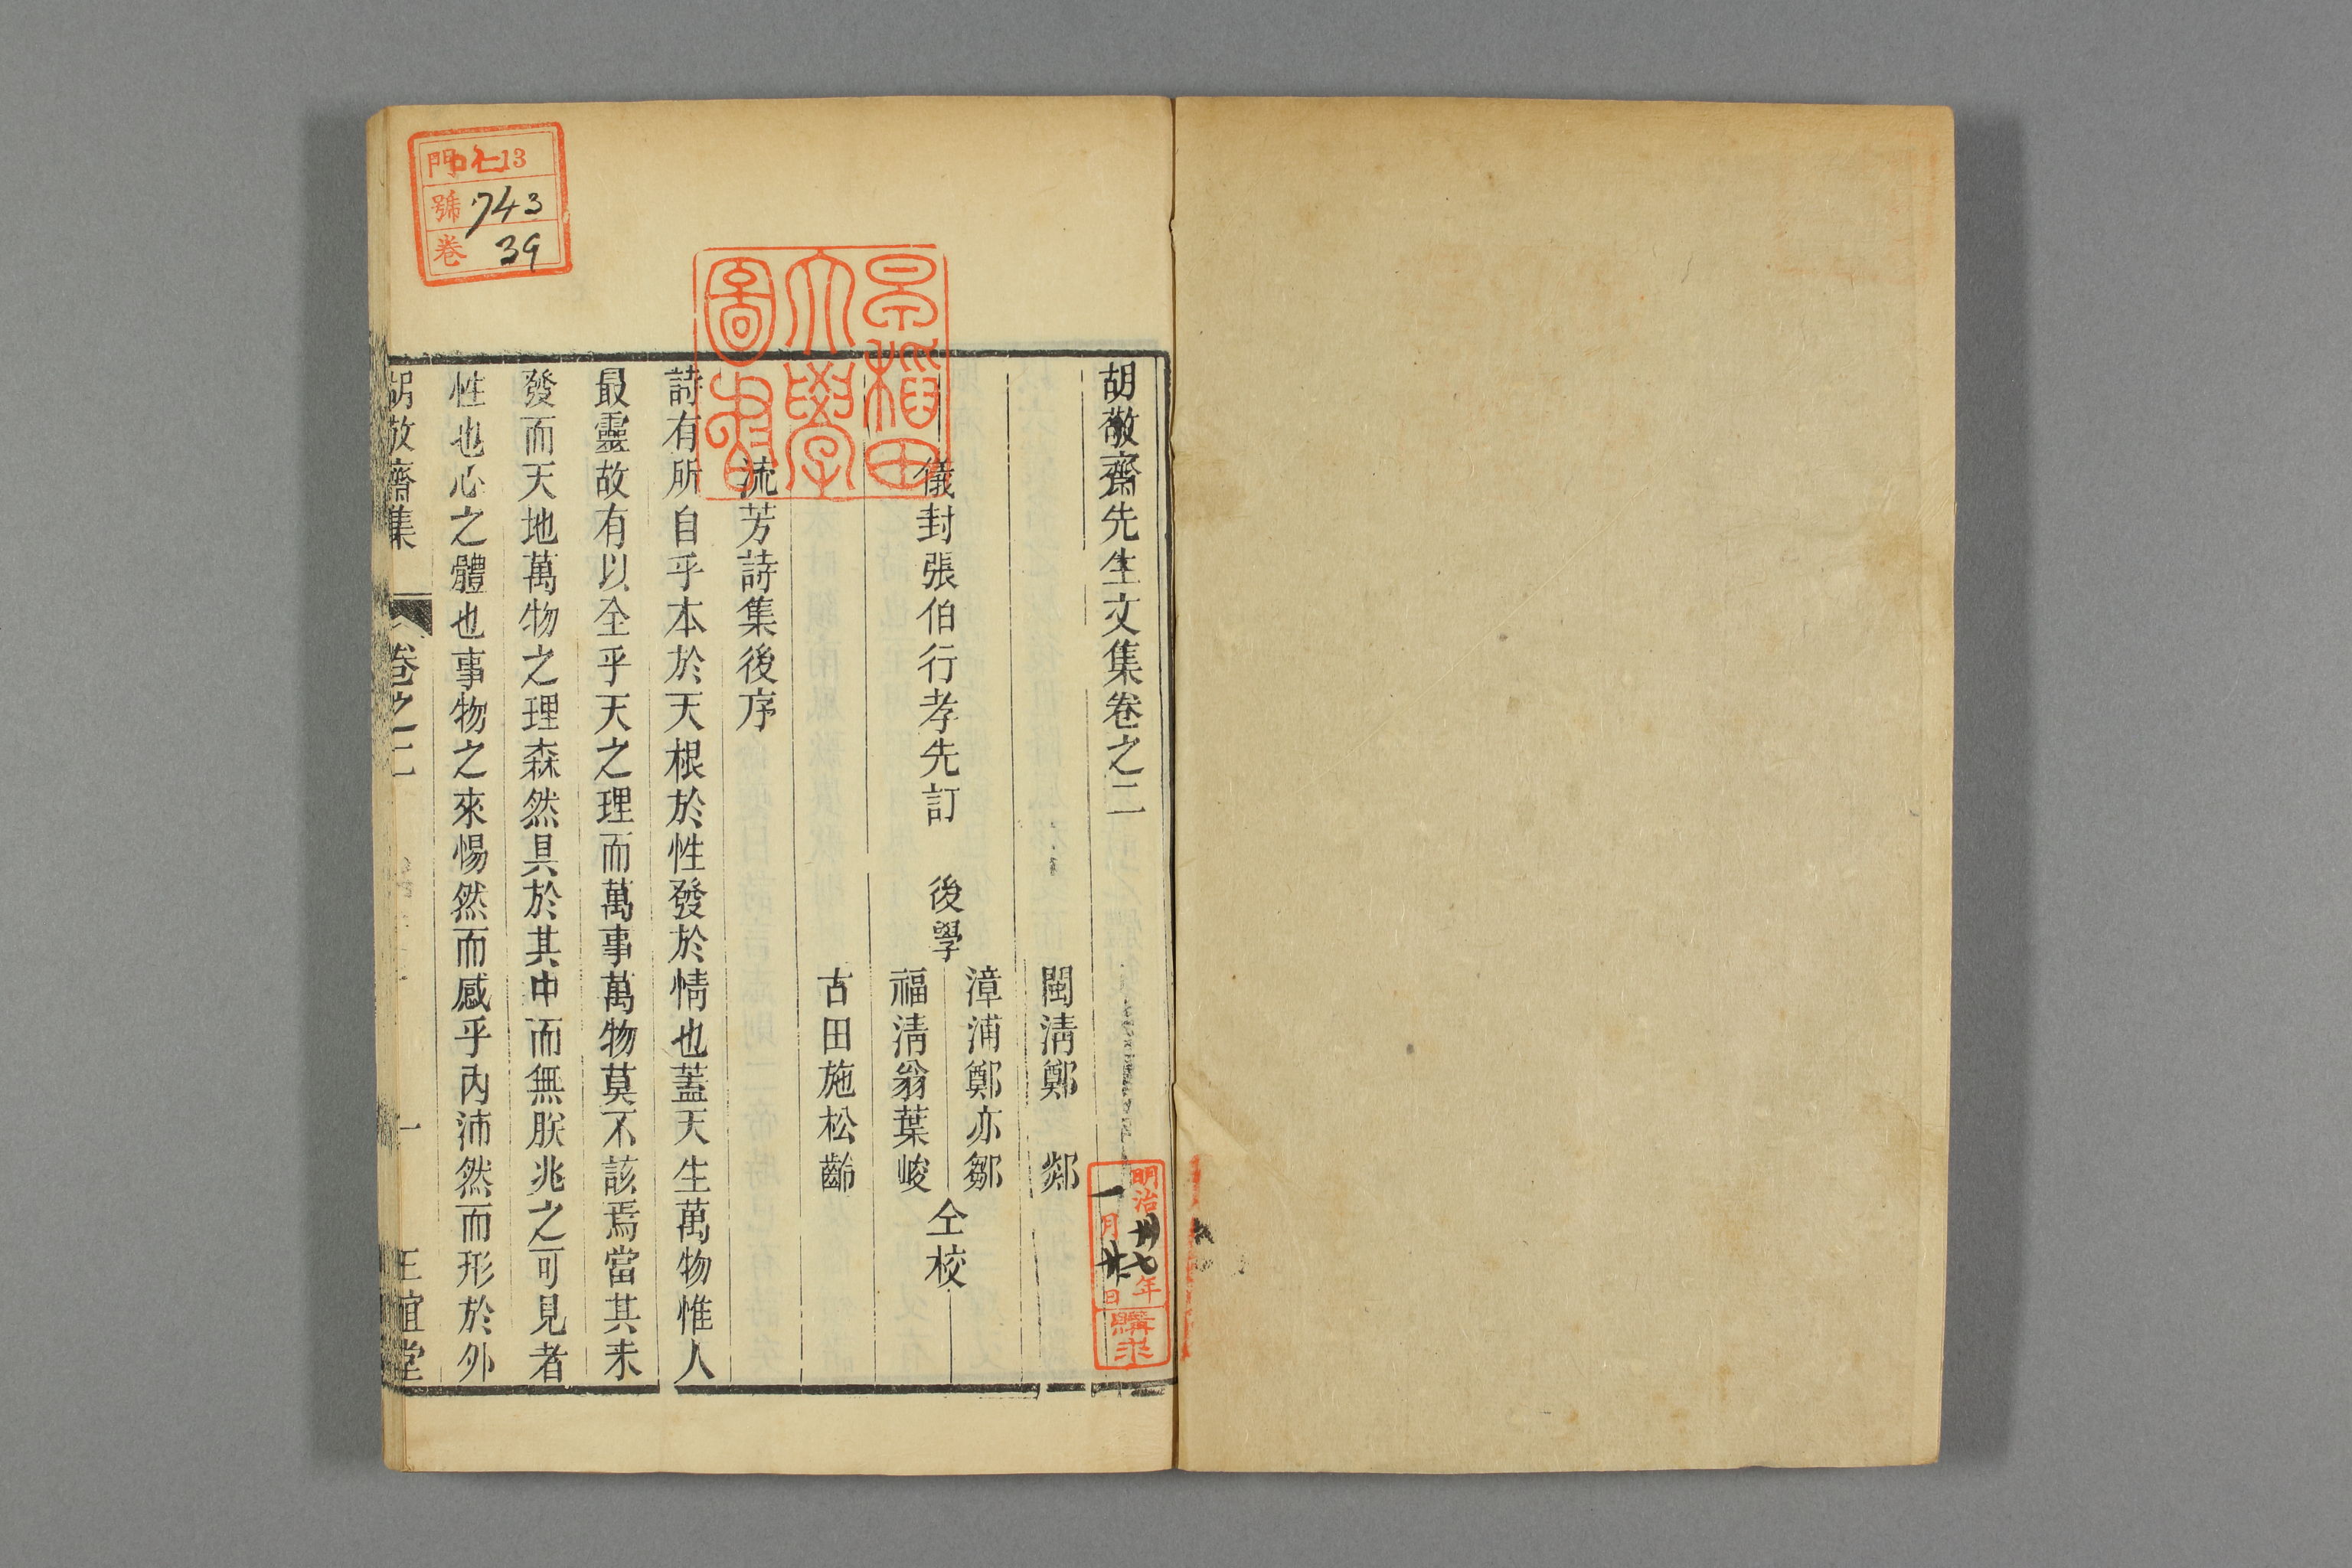 胡敬齋先生文集卷之二
儀封張伯行孝先訂
後學
閩清鄭 郯
漳浦鄭亦鄒
福清翁葉峻
古田施松齡
仝校
流芳詩集後序
詩有所自乎本於天根於性發於情也蓋天生萬物惟人
最靈故有以全乎天之理而萬事萬物莫不該焉當其未
發而天地萬物之理森然具於其中而無朕兆之可見者
性也心之體也事物之來惕然而感乎內沛然而形於外
胡敬齋集
卷之二
一
正誼堂
早稻田
大學
圖書
門 13
號 743
卷 39
明治卅七年
一月廿 日
購求